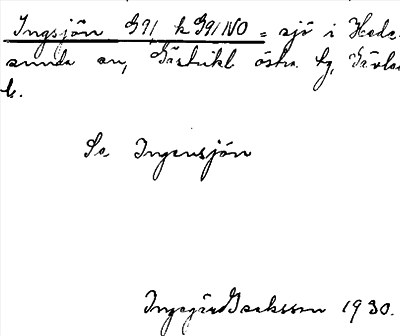 Ingsjön G91 k G91NO = sjö i Hede-
sunda sn, Gästrikl. östra tg, Gävleb.
l.
Se Ingensjön
Ingegärd Isaksson 1930.